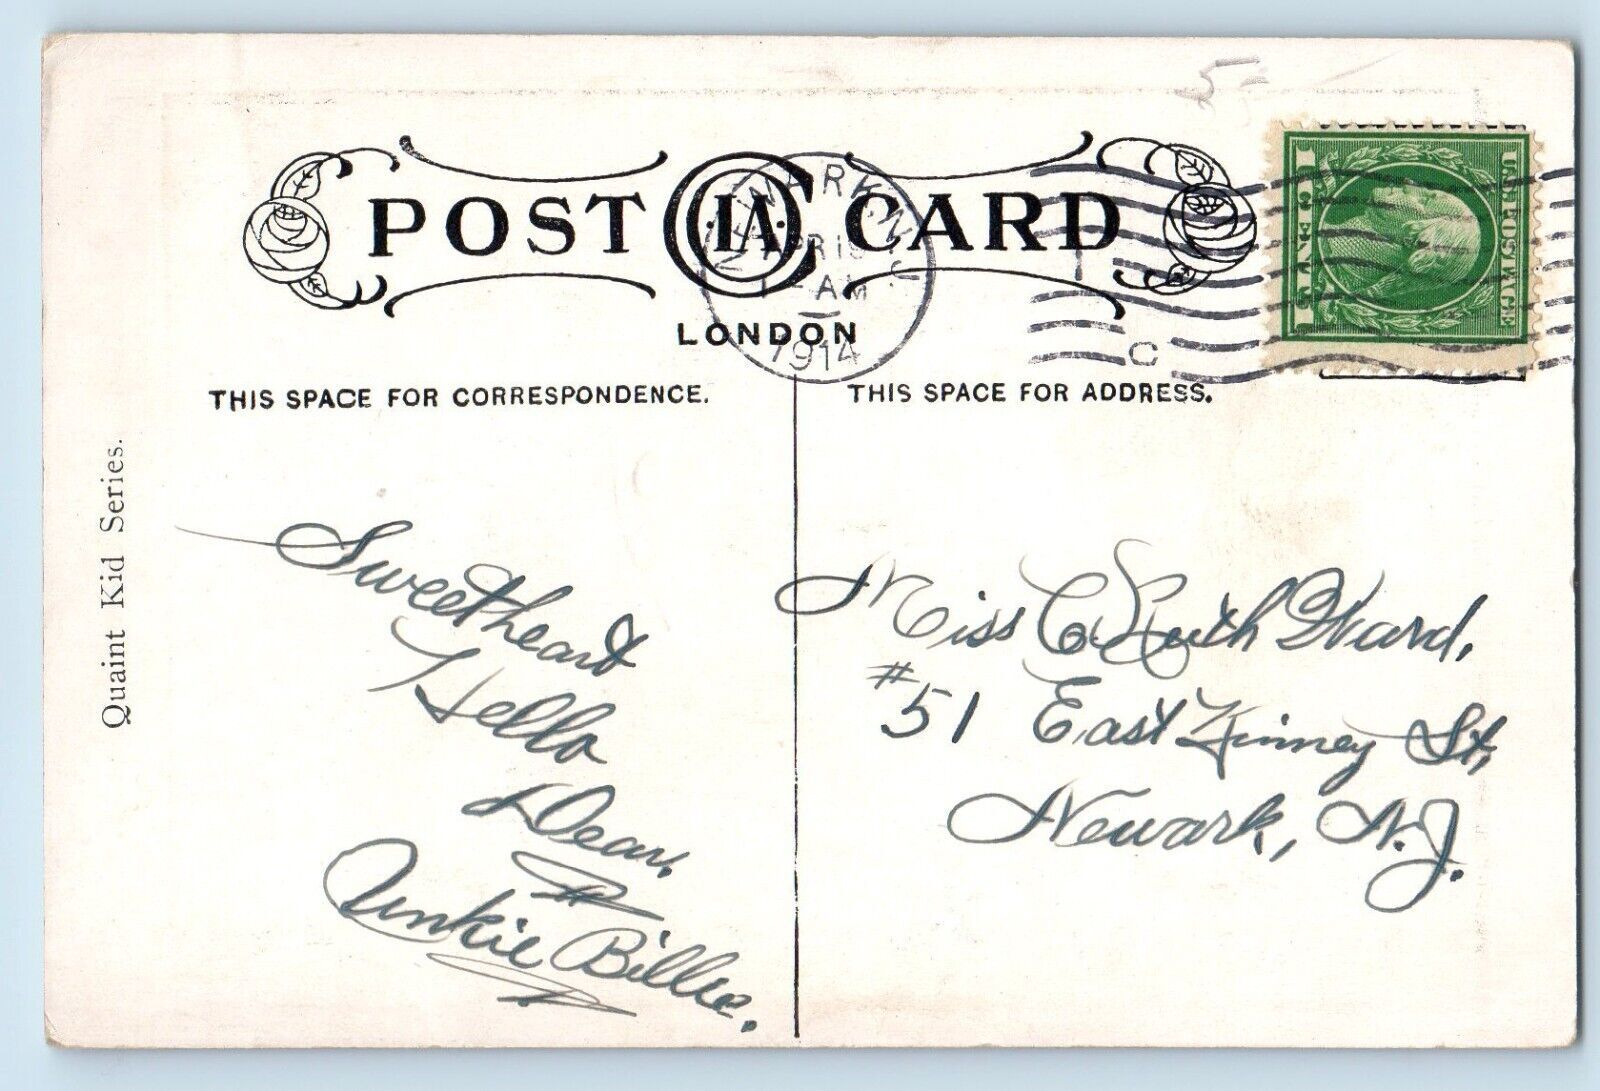 5
POST CIA CARD
LONDON
NEWARK, N.J.
APR 19
1 - AM
1914
C
U.S. POSTAGE
1 CENT 1
THIS SPACE FOR CORRESPONDENCE.
THIS SPACE FOR ADDRESS.
Quaint Kid Series.
Sweetheart
Hello
Dear.
Unkie Billie.
Miss C Ruth Ward,
#51 East Kinney St,
Newark, N.J.